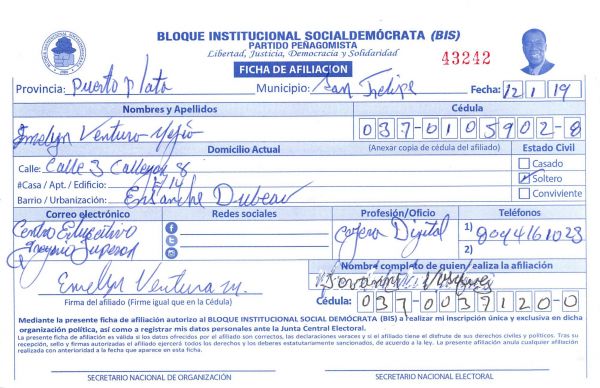 BLOQUE INSTITUCIONAL SOCIALDEMÓCRATA (BIS)
PARTIDO PEÑAGOMISTA
Libertad, Justicia, Democracia y Solidaridad
43242
FICHA DE AFILIACION
Provincia: Puerto Plata Municipio: San Felipe Fecha: 12 1 19
Nombres y Apellidos Cédula
Emelyn Ventura Mejío 037-0105902-8
Domicilio Actual (Anexar copia de cédula del afiliado) Estado Civil
Calle: Calle 3 Callejon 8 Casado
#Casa / Apt. / Edificio: E/14 Soltero
Barrio / Urbanización: Ensanche Dubeau Conviviente
Correo electrónico Redes sociales Profesión/Oficio Teléfonos
Centro Educativo Cajera Digital 1) 8094161023
Gregorio 2)
Nombre completo de quien realiza la afiliación
Emelyn Ventura M. Jovanny Vasquez
Firma del afiliado (Firme igual que en la Cédula) Cédula: 037-0037120-0
Mediante la presente ficha de afiliación autorizo al BLOQUE INSTITUCIONAL SOCIAL DEMÓCRATA (BIS) a realizar mi inscripción única y exclusiva en dicha
organización política, así como a registrar mis datos personales ante la Junta Central Electoral.
La presente ficha de afiliación es válida si los datos ofrecidos por el afiliado son correctos, las declaraciones veraces y si el afiliado tiene el disfrute de sus derechos civiles y políticos. Tras su
recepción, sello y firmas autorizadas el afiliado ejercerá todos los derechos y los deberes estatutariamente sancionados, de acuerdo a la ley. La presente afiliación anula cualquier afiliación
realizada con anterioridad a la fecha que aparece en esta ficha.
SECRETARIO NACIONAL DE ORGANIZACIÓN SECRETARIO NACIONAL ELECTORAL